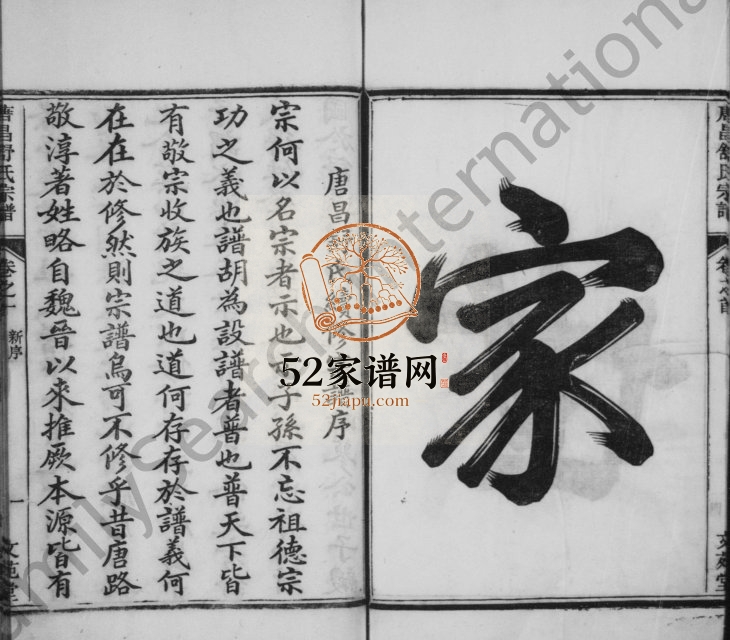 家
唐昌舒氏宗譜
卷之首
文苑堂
唐昌氏修序
宗何以名宗者示也子孫不忘祖德宗
功之義也譜胡為設譜者普也普天下皆
有敬宗收族之道也道何存存於譜義何
在在於修然則宗譜烏可不修乎昔唐路
敬淳著姓略自魏晉以來推厥本源皆有
唐昌舒氏宗譜
卷之一
新序
一
文苑堂
52家谱网
52jiapu.com
FamilySearch International